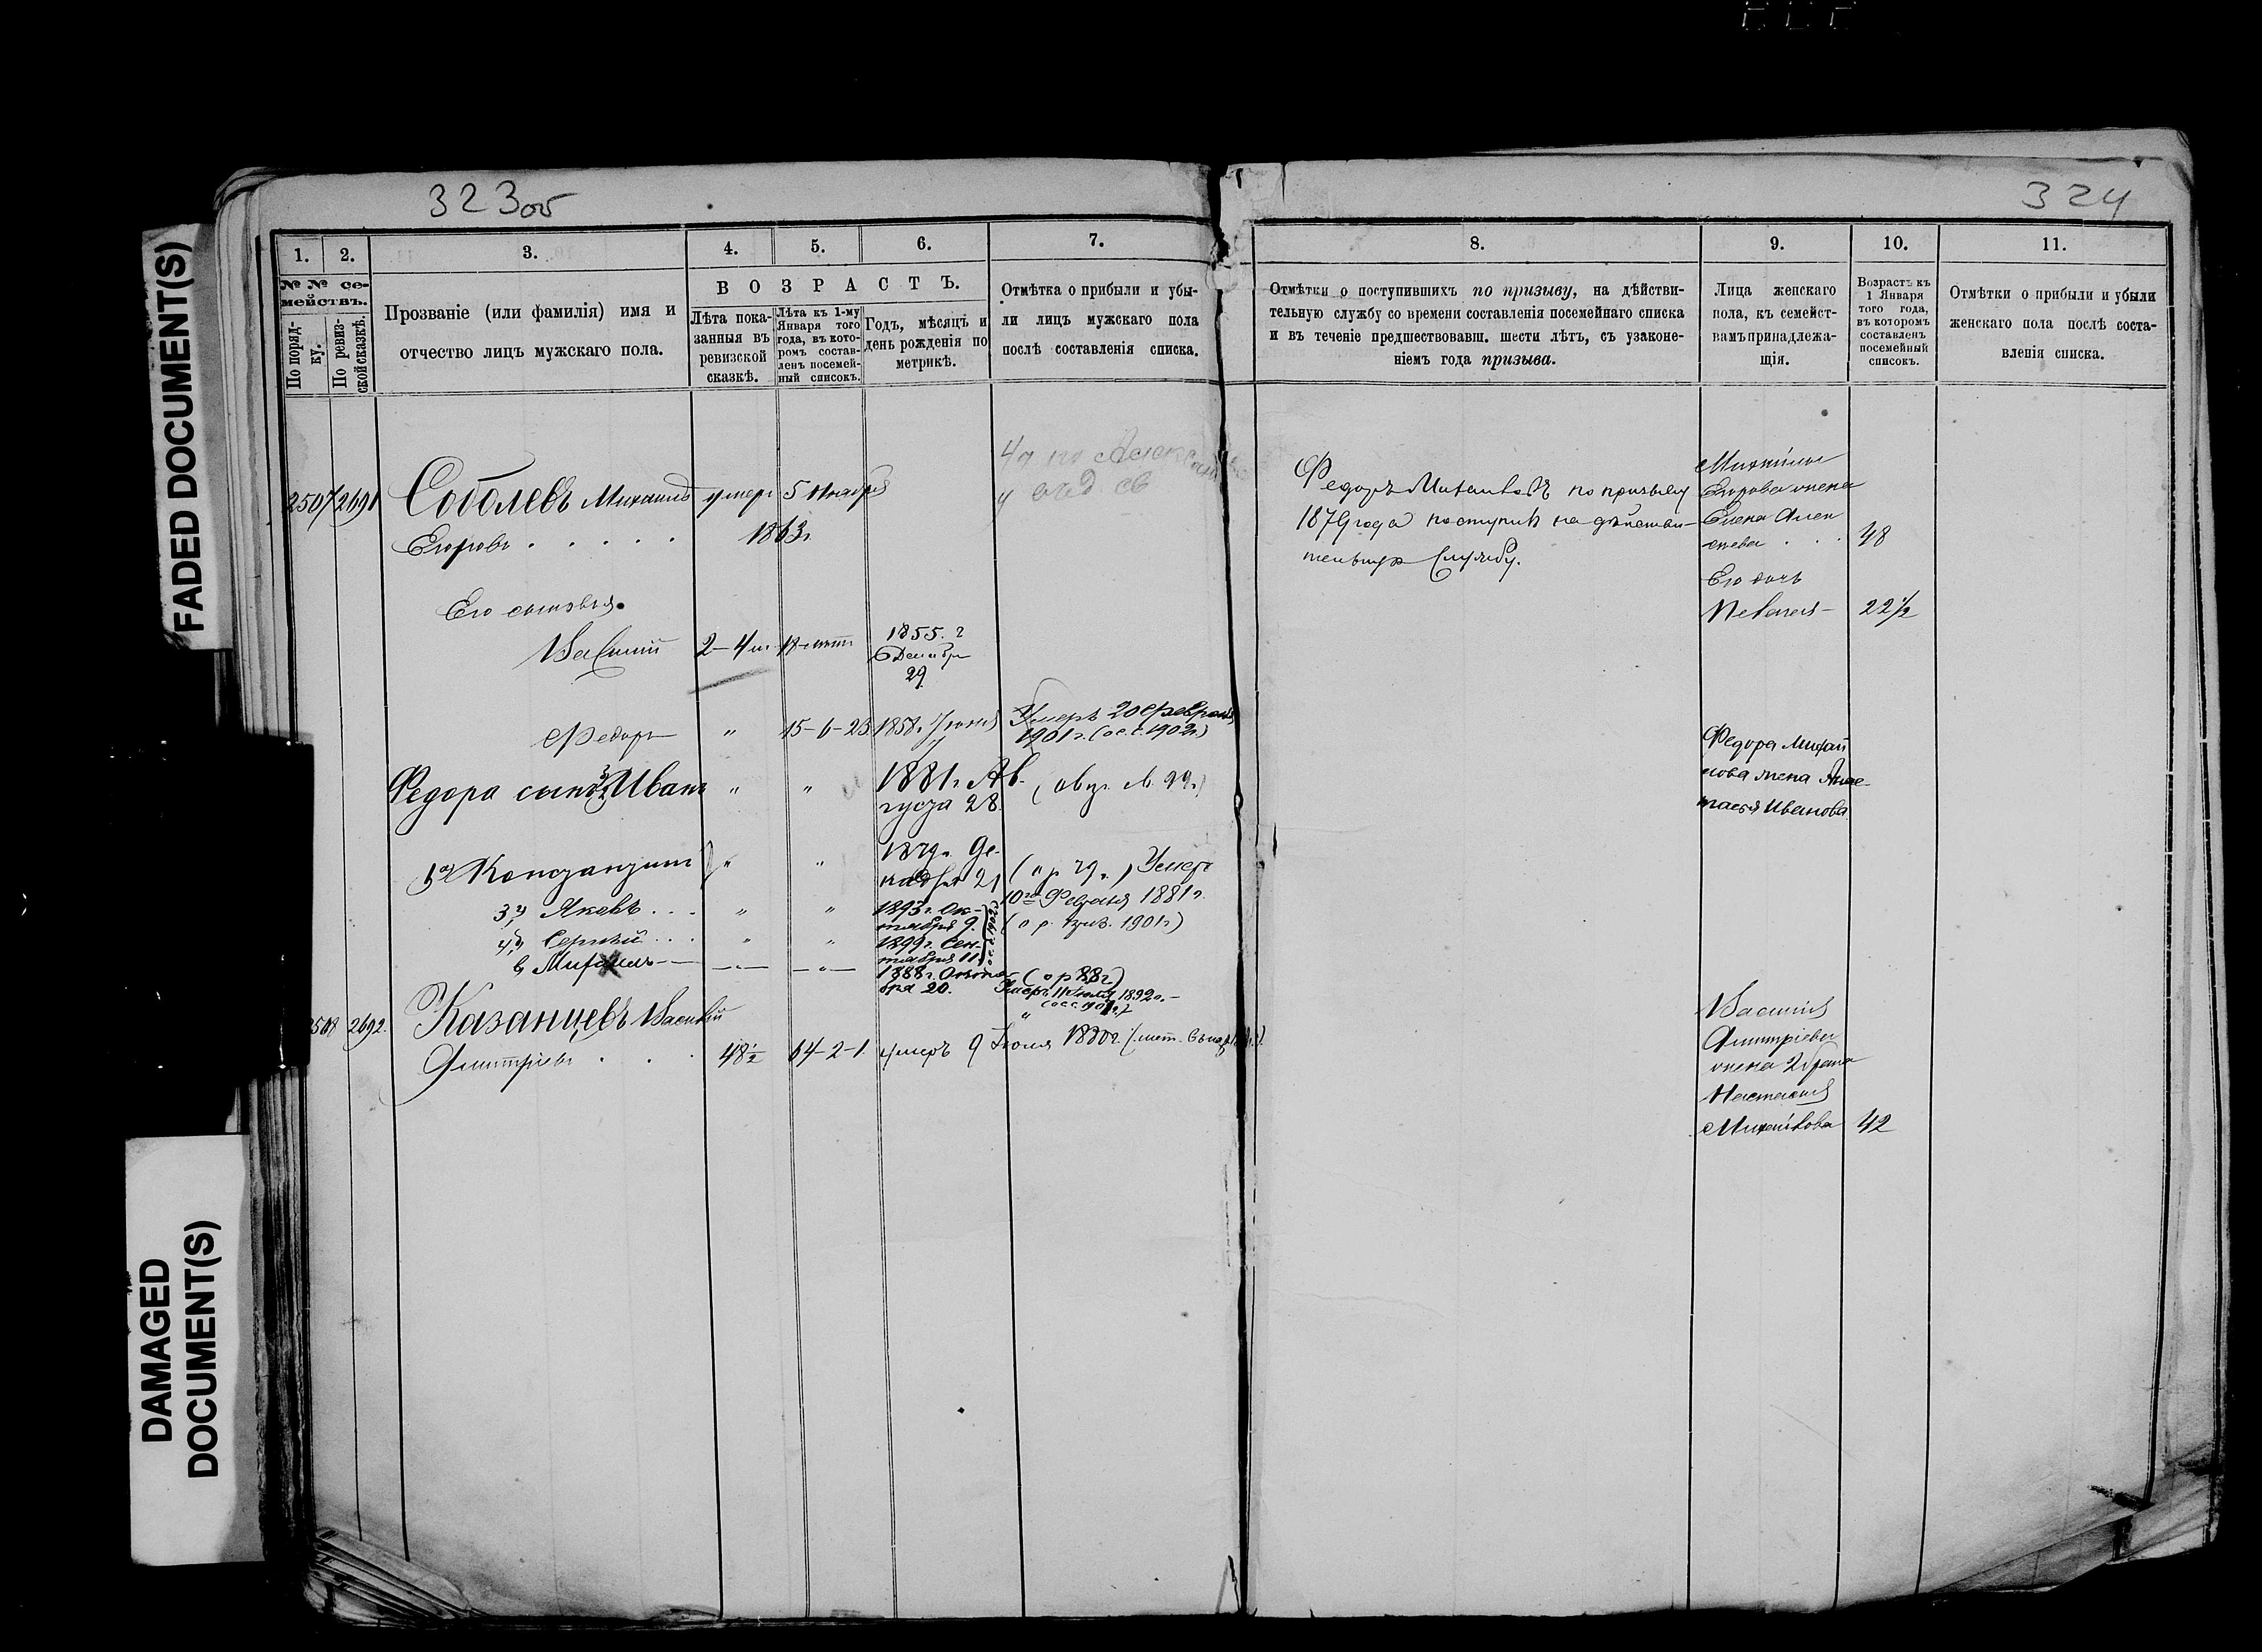 323об
324
FADED DOCUMENT(S)
DAMAGED
DOCUMENT(S)
1.
2.
3.
4.
5.
6.
7.
№ № се-
мействъ.
По поряд-
ку.
По ревиз-
ской сказкѣ.
Прозваніе (или фамилія) имя и
отчество лицъ мужскаго пола.
ВОЗРАСТЪ.
Лѣта пока-
занныя въ
ревизской
сказкѣ.
Лѣта къ 1-му
Января того
года, въ кото-
ромъ состав-
ленъ посемей-
ный списокъ.
Годъ, мѣсяцъ и
день рожденія по
метрикѣ.
Отмѣтка о прибыли и убы-
ли лицъ мужскаго пола
послѣ составленія списка.
2507 2691 Соболевъ Михаилъ умеръ 5 Ноября
Егоровъ . . . . . 1863г.
Его сыновья.
Василій 2-4м.
1855. г
Декабря
29.
Федоръ " 15-6-23 1858г. Іюня Умеръ 20 Февраля
1901г. (ос.с. 1902г.)
Федора сынъ Иванъ " " 1881г. Ав-
густа 28.
Константинъ " " 1879г. Де-
кабря 21 Умеръ
10го Февраля 1881г.
3й Яковъ . . . " " 1893г. Ок-
тября 9.
1901г.)
4й Сергѣй . . . " " 1899г. Сен-
тября 11.
Михаилъ 1888г. Октя-
бря 20. (о р 88г)
Умеръ 1892г.
2508 2692. Казанцевъ Василій
Дмитріевъ . . . 48½ 64-2-1. умеръ 9 Іюля
8.
9.
10.
11.
Отмѣтки о поступившихъ по призыву, на дѣйстви-
тельную службу со времени составленія посемейнаго списка
и въ теченіе предшествовавш. шести лѣтъ, съ узаконе-
ніемъ года призыва.
Лица женскаго
пола, къ семейст-
вамъ принадлежа-
щія.
Возрастъ къ
1 Января
того года,
въ которомъ
составленъ
посемейный
списокъ.
Отмѣтки о прибыли и убыли
женскаго пола послѣ соста-
вленія списка.
Федоръ Михайловъ по призыву
1879 года поступилъ на дѣйстви-
тельную службу.
Михаила
Егорова жена
Елена Алек
сѣева . . . 48
Его дочь
Пелагея – 22½
Федора Михай
лова жена Анас-
тасья Иванова.
Василія
Дмитріева
жена 2 брака
Настасья
Михайлова 42